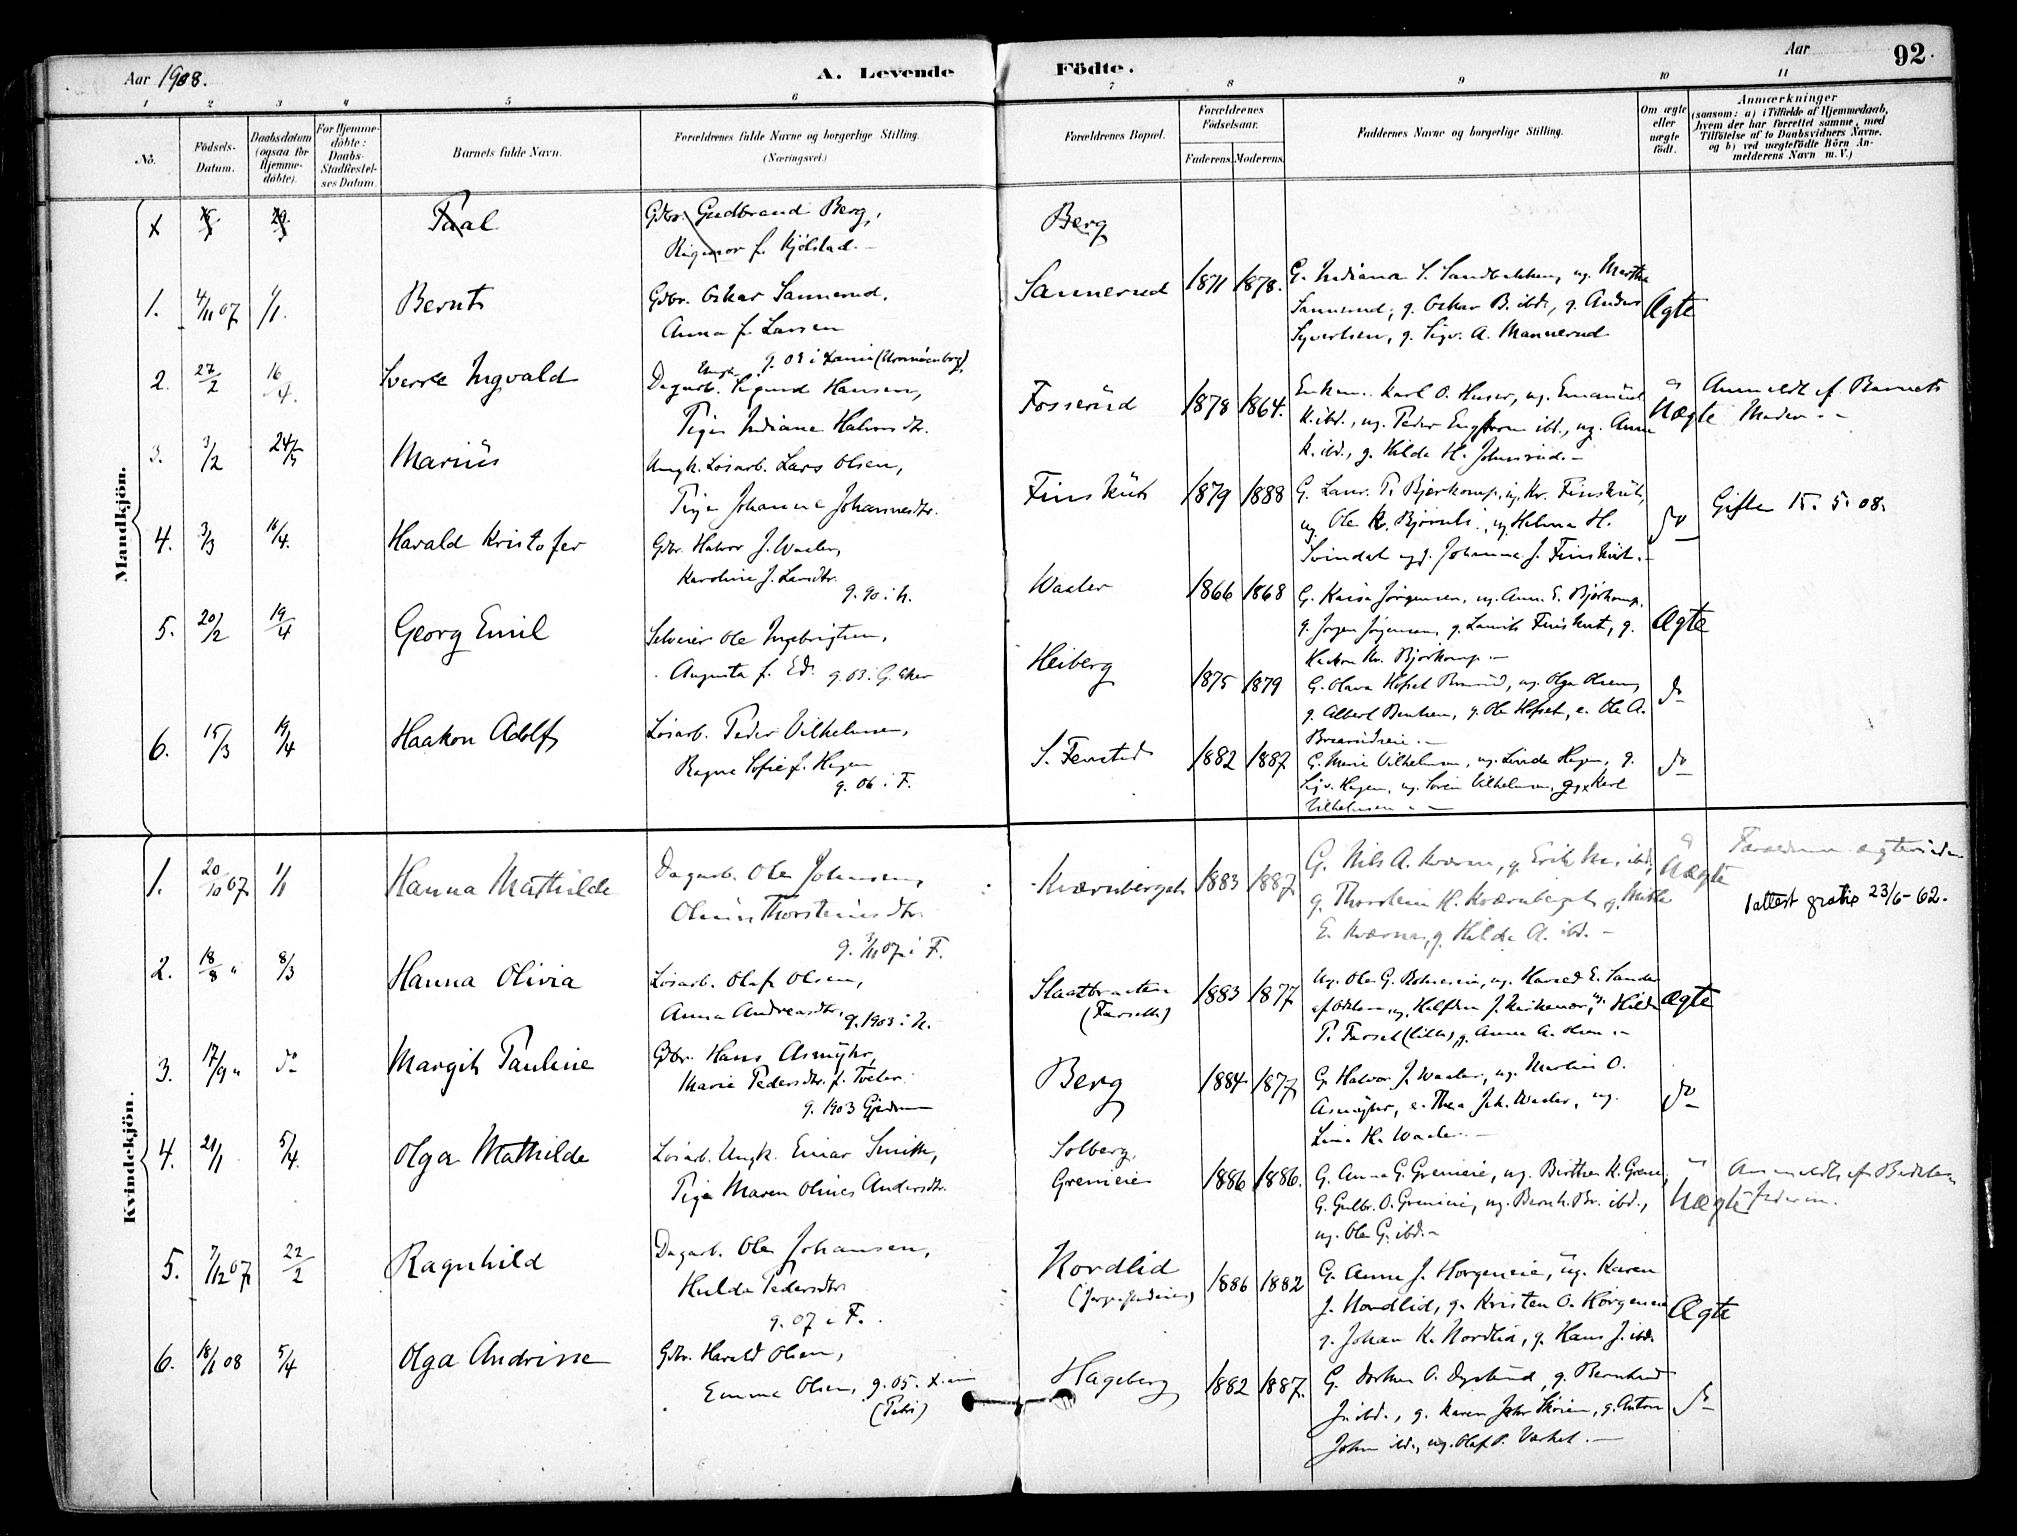 Aar 1908.
A. Levende Födte.
Aar
92.
1 2 3 4 5 6 7 8 9 10 11
No.
Födsels-Datum.
Daabsdatum (ogsaa for Hjemme-döbte).
For Hjemme-döbte: Daabs-Stadfæstel-ses Datum.
Barnets fulde Navn.
Forældrenes fulde Navne og borgerlige Stilling.
(Næringsvei.)
Forældrenes Bopæl.
Forældrenes Födselsaar.
Faderens. Moderens.
Faddernes Navne og borgerlige Stilling.
Om ægte eller uægte födt.
Anmærkninger
(saasom: a) i Tilfælde af Hjemmedaab,
hvem der har forrettet samme, med
Tilföielse af to Daabsvidners Navne.
og b) ved uægtefödte Börn An-
melderens Navn m. V.)
Mandkjön.
Paal
Gbr. Gudbrand Berg,
Berg
Ringinor f. Kjölstad.
1. 4/11 07 1/1. Bernt
Gbr. Oskar Sannerud,
Anna f. Larsen
Sannerud 1871 1878.
G. Indiana S. Sandbakken, ug. Martha
Sannerud, g. Oskar B. ibd., g. Anders
Syvertsen, g. Sigv. A. Mannerud
Ægte
2. 27/2 16/4. Sverre Ingvald
Dagarb. Sigurd Hansen,
Pige Indiane Halvorsdtr.
Fosserud 1878 1864.
Enkem. Karl O. Huser, ug. Emanuel
K. ibd., ug. Peder Engstrøm ibd., ug. Anna
K. ibd., g. Hilda H. Johnsrud.
Uægte
Anmeldt af Barnets
Moder.
3. 3/2 24/5 Marius
Ungk. Løsarb. Lars Olsen,
Pige Johanne Johannesdtr.
Finskut 1879 1888
G. Laur. P. Bjørkomp, ug. Kr. Finskut,
ug. Ole K. Bjørnli, ug. Helma H.
Svindal ug. Johanna J. Finskut.
do
Gifte 15. 5. 08.
4. 3/3 16/4. Harald Kristofer
Gbr. Halvor J. Waaler,
Karoline J. Larsdtr.
g. 90 i N.
Waaler 1866 1868
G. Kaisa Jørgensen, ug. Anna E. Bjørkomp,
g. Jørgen Jørgensen, g. Laurits Finskut, g.
Haakon Kr. Bjørkomp.
Ægte
5. 20/2 19/4 Georg Emil
Selveier Ole Ingebrigtsen,
Augusta f. Ed. g. 03. G. Aker
Heiberg 1875 1879
G. Olava Hofset, ug. Olga Olsen,
g. Albert Bentsen, g. Ole Hofset, e. Ole A.
do
6. 15/3 19/4 Haakon Adolf
Løsarb. Peder Vilhelmsen,
Ragna Sofie f. Hagen
g. 06 i F.
S. Fenstad 1882 1887
G. Marie Vilhelmsen, ug. Linda Hagen, g.
Sigv. Hagen, ug. Søren Vilhelmsen, ug. Karl
Vilhelmsen
do
Kvindekjön.
1. 20/10 07 1/1 Hanna Mathilde
Dagarb. Ole Johansen,
Oline Thorsteinsdtr.
g. 3/11 07 i F.
Kværnberget 1883 1887
G. Nils A. Kværna, g. Erik N. ibd.,
g. Thorstein H. Kværnberget, g. Mathea
E. Kværna, g. Hilda A. ibd.
Uægte
1 attest gratis 23/6-62.
2. 18/8 " 8/3 Hanna Olivia
Løsarb. Olaf Olsen,
Anna Andreasdtr. g. 1903 i N.
Slaatbraaten
(Farseth) 1883 1877
ug. Halfdan J. Kirkemoe, ug. Hilda
P. Farset (Lille), g. Anna A. Olsen
Ægte
3. 17/9 " do Margit Pauline
Gbr. Hans Asmyhr,
Marie Pedersdtr. f. Tveter
g. 1903 Gjerdrum
Berg 1884 1877
G. Halvor J. Waaler, ug. Martin O.
Asmyhr, e. Thea Joh. Waaler, ug.
Lina H. Waaler.
do
4. 21/1 5/4. Olga Mathilde
Løsarb. Ungk. Einar Smith,
Pige Maren Olines Andersdtr.
Solberg,
Grenieie 1886 1886.
G. Anna G. Grenieie, ug. Birthe K. Greni,
G. Gulbr. O. Grenieie, ug. Bernh. Br. ibd.,
ug. Ole G. ibd.
Uægte
5. 7/12 07 22/2 Ragnhild
Dagarb. Ole Johansen,
Hulda Pedersdtr.
g. 07 i F.
Nordlid 1886 1882
G. Anna J. Horgeneie, ug. Karen
J. Nordlid, g. Kristen O. Horgeneie
g. Johan K. Nordlid, g. Hans J. ibd.
Ægte
6. 18/1 08 5/4 Olga Andrine
Gbr. Harald Olsen,
Emma Olsen, g. 05.
Hageberg 1882 1887.
G. Dorthea O. Dystrud, g. Bernhard
J. ibd., g. Karen Joh. Skrien, g. Anton
John ibd., ug. Olaf P. Varhel.
do